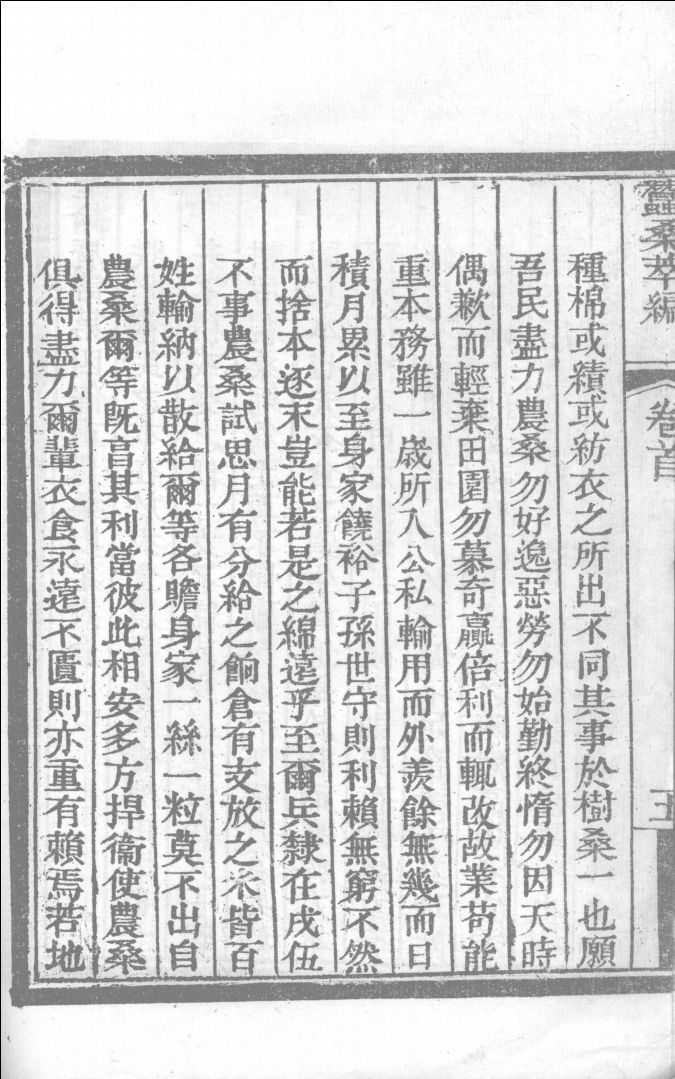 蠶桑萃編 卷首 五
種棉或績或紡衣之所出不同其事於樹桑一也願
吾民盡力農桑勿好逸惡勞勿始勤終惰勿因天時
偶歉而輕棄田園勿慕奇贏倍利而輒改故業苟能
重本務雖一歲所入公私輸用而外羨餘無幾而日
積月累以至身家饒裕子孫世守則利賴無窮不然
而捨本逐末豈能若是之綿遠乎至爾兵隸在戎伍
不事農桑試思月有分給之餉倉有支放之米皆百
姓輸納以散給爾等各贍身家一絲一粒莫不出自
農桑爾等旣享其利當彼此相安多方捍衞使農桑
俱得盡力爾輩衣食永遠不匱則亦重有賴焉若地